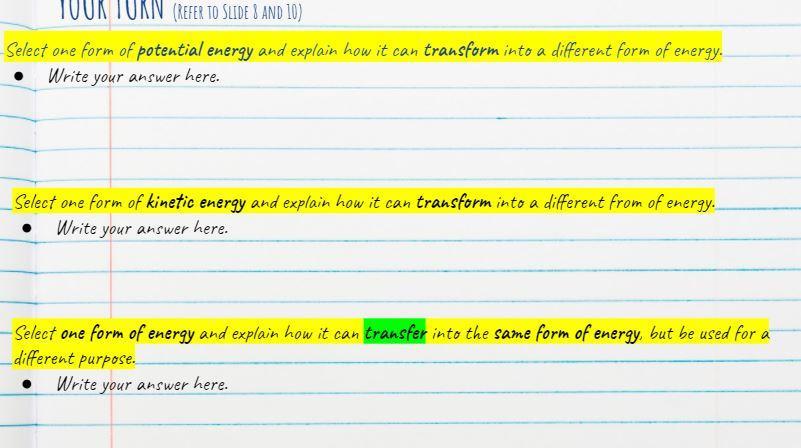 YOUR TURN (REFER TO SLIDE 8 AND 10)
Select one form of potential energy and explain how it can transform into a different form of energy.
● Write your answer here.
Select one form of kinetic energy and explain how it can transform into a different from of energy.
● Write your answer here.
Select one form of energy and explain how it can transfer into the same form of energy, but be used for a
different purpose.
● Write your answer here.